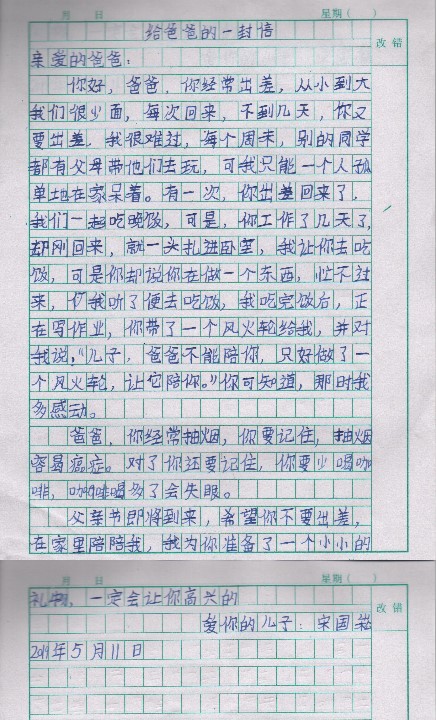 月 日 星期( )
给爸爸的一封信
改错
亲爱的爸爸:
你好,爸爸,你经常出差,从小到大
我们很少面,每次回来,不到几天,你又
要出差,我很难过,每个周末,别的同学
都有父母带他们去玩,可我只能一个人孤
单地在家呆着。有一次,你出差回来了,
我们一起吃晚饭,可是,你工作了几天了,
却刚回来,就一头扎进卧室,我让你去吃
饭,可是你却说你在做一个东西,忙不过
来,我听了便去吃饭,我吃完饭后,正
在写作业,你带了一个风火轮给我,并对
我说,“儿子,爸爸不能陪你,只好做了一
个风火轮,让它陪你。”你可知道,那时我
多感动。
爸爸,你经常抽烟,你要记住,抽烟
容易癌症。对了你还要记住,你要少喝咖
啡,咖啡喝多了会失眠。
父亲节即将到来,希望你不要出差,
在家里陪陪我,我为你准备了一个小小的
月 日 星期( )
礼物,一定会让你高兴的
改错
爱你的儿子:宋国
2019年5月11日